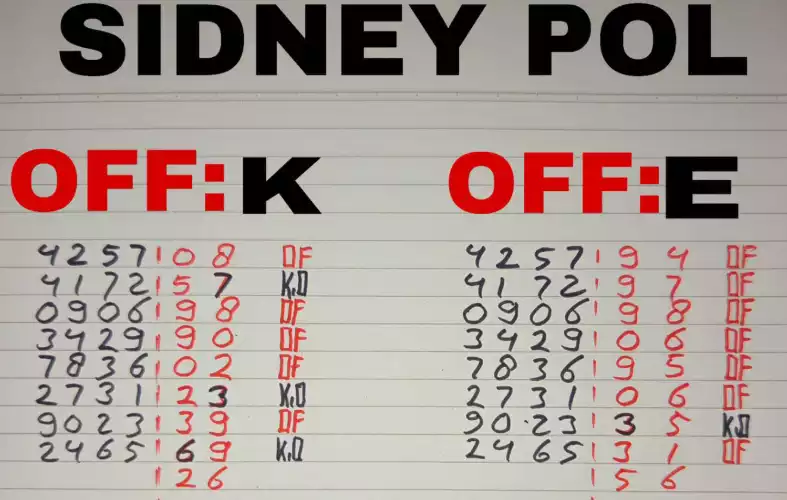 SIDNEY POL
OFF:K OFF:E
4257 | 08 OF 4257 | 94 OF
4172 | 57 K.O 4172 | 97 OF
0906 | 98 OF 0906 | 98 OF
3429 | 90 OF 3429 | 06 OF
7836 | 02 OF 7836 | 95 OF
2731 | 23 K.O 2731 | 06 OF
9023 | 39 OF 90.23 | 35 K.O
2465 | 69 K.O 2465 | 31 OF
| 26 | 56